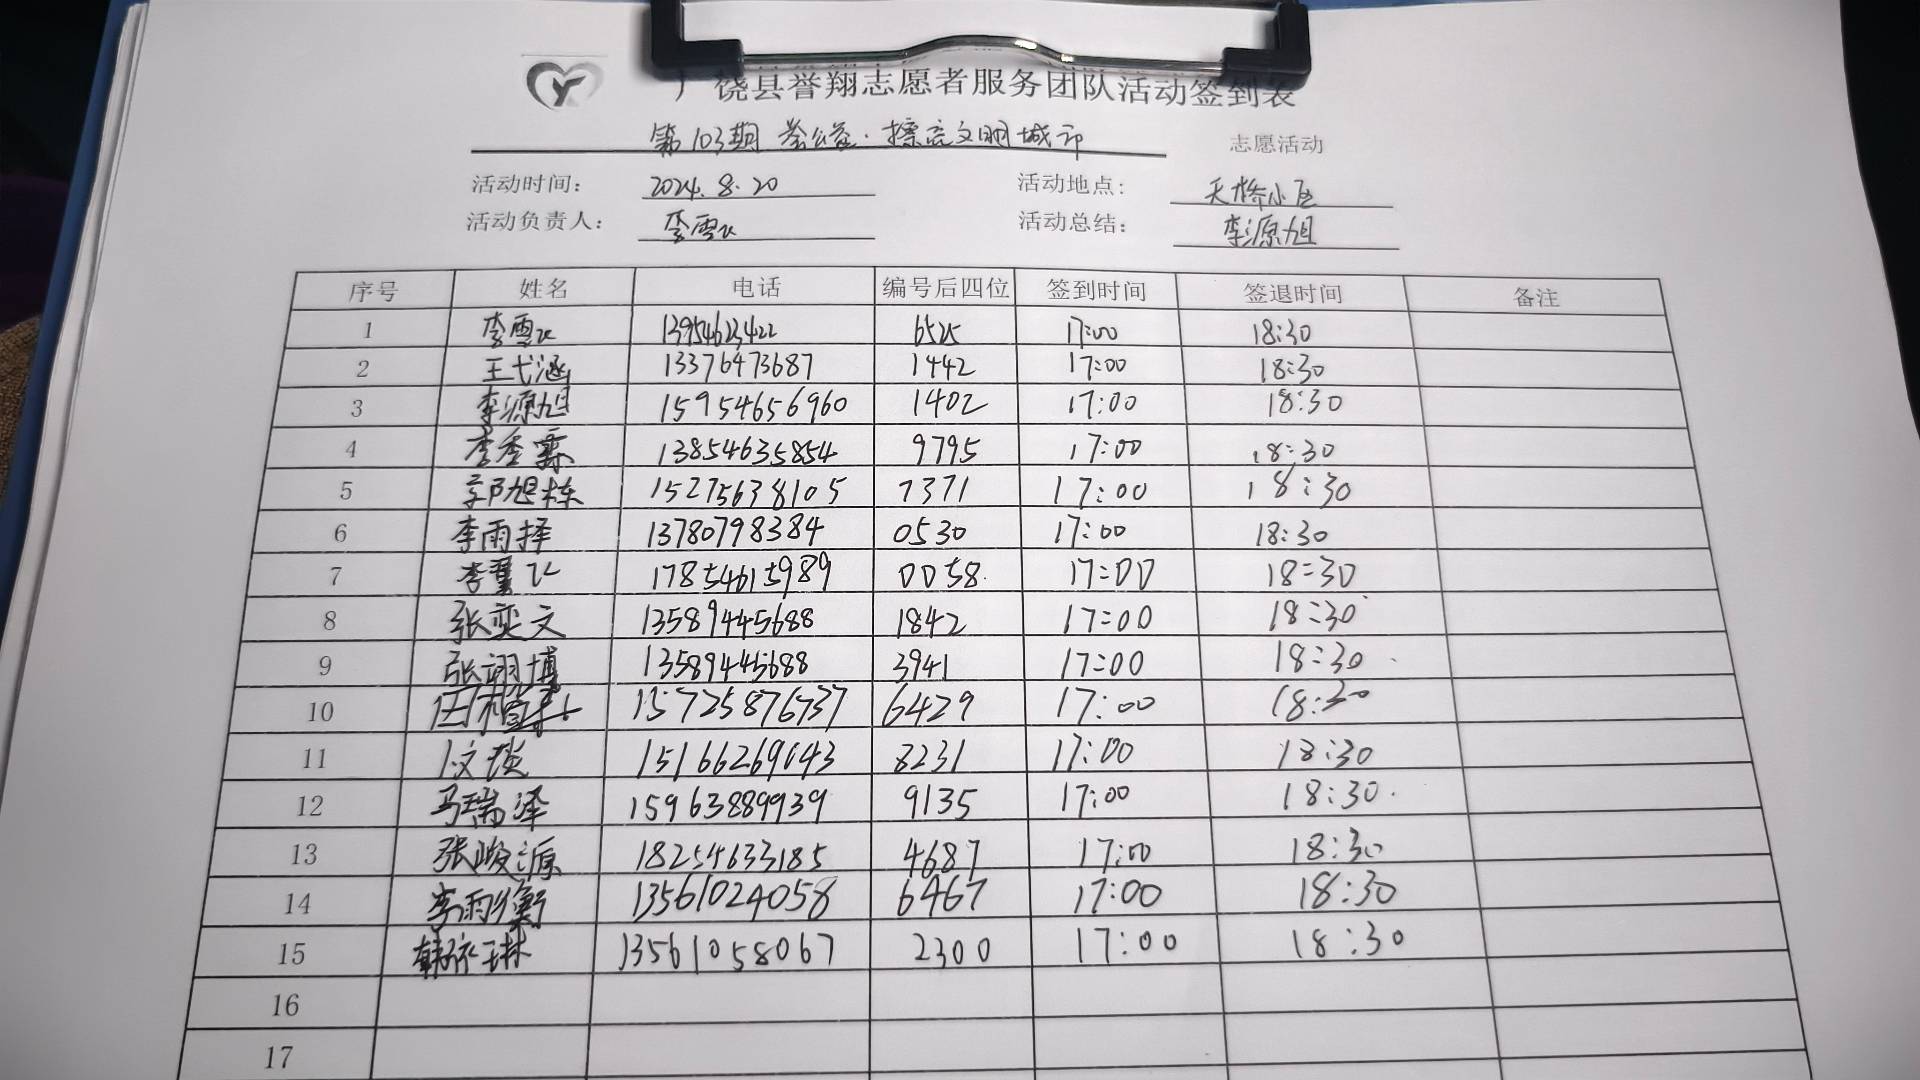 广饶县誉翔志愿者服务团队活动签到表
第103期 益公益·擦亮文明城市 志愿活动
活动时间： 2024.8.20 活动地点： 天桥小区
活动负责人： 李雪飞 活动总结： 李源旭
序号 姓名 电话 编号后四位 签到时间 签退时间 备注
1 李雪飞 13954623422 6525 17:00 18:30
2 王弋涵 13376473687 1442 17:00 18:30
3 李源旭 15954656960 1402 17:00 18:30
4 李秀霖 13854635854 9795 17:00 18:30
5 郭旭栋 15275638105 7371 17:00 18:30
6 李雨择 13780798384 0530 17:00 18:30
7 李翼飞 17854615989 0058 17:00 18:30
8 张奕文 13589445688 1842 17:00 18:30
9 张翊博 13589445688 3941 17:00 18:30
10 15725876737 6429 17:00 18:30
11 15166269643 8231 17:00 18:30
12 马瑞泽 15963889939 9135 17:00 18:30
13 张峻源 18254633185 4687 17:00 18:30
14 李雨衡 13561024058 6467 17:00 18:30
15 韩依琳 13561058067 2300 17:00 18:30
16
17